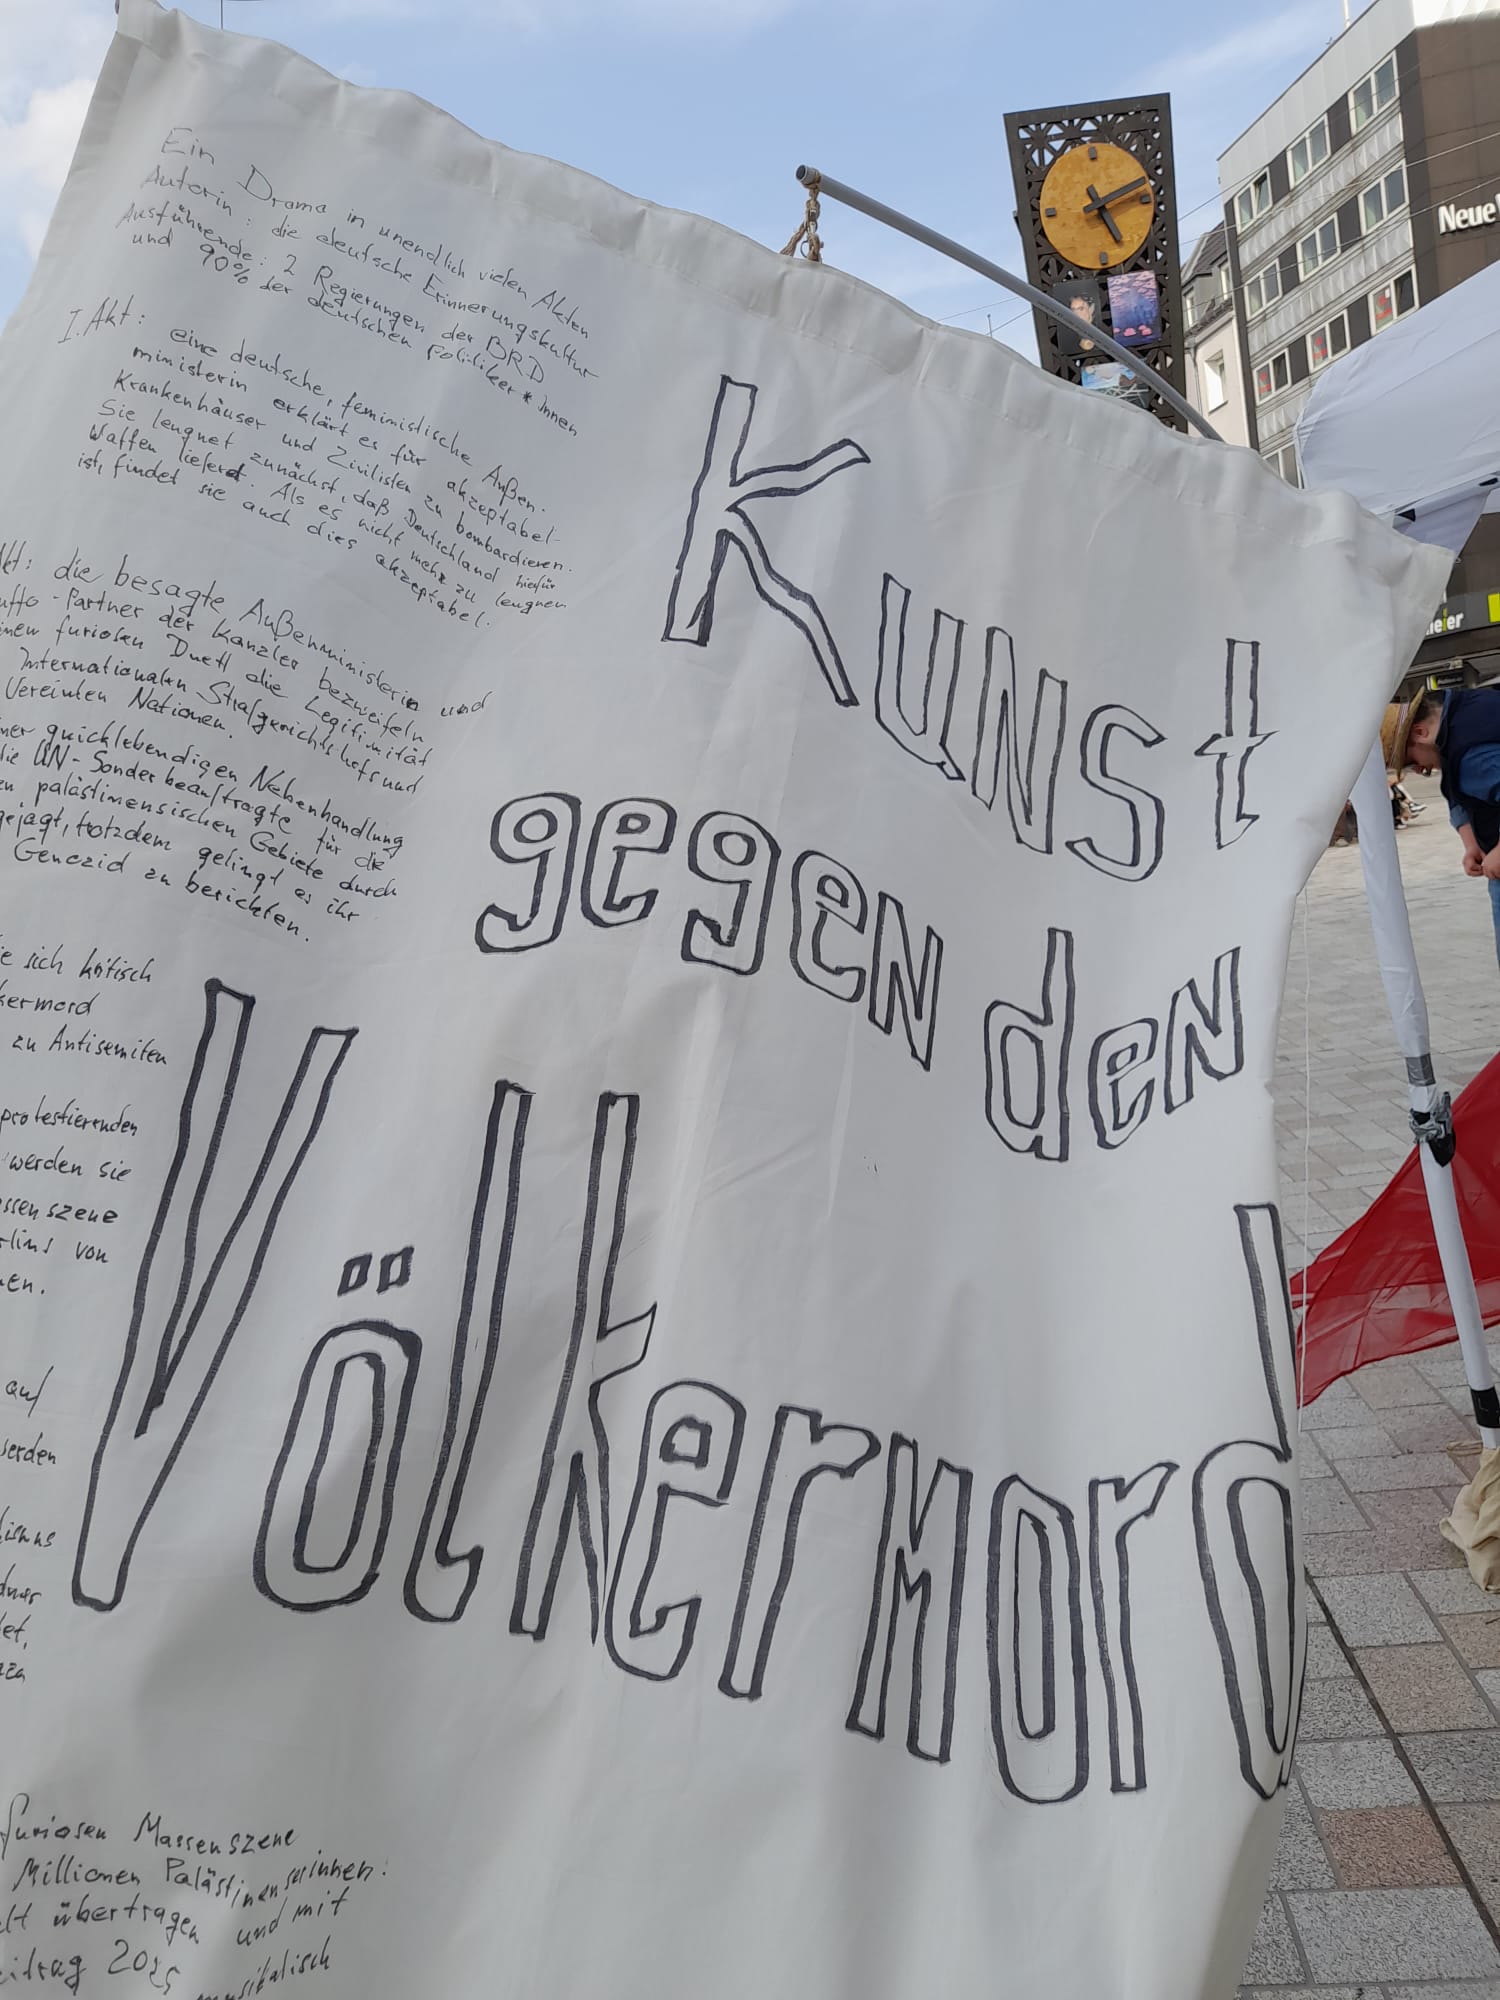 Ein Drama in unendlich vielen Akten
Autorin: die deutsche Erinnerungskultur
Ausführende: 2 Regierungen der BRD
und 90% der deutschen Politiker*innen
I. Akt:
eine deutsche, feministische Außen-
ministerin erklärt es für akzeptabel
Krankenhäuser und Zivilisten zu bombardieren.
Sie leugnet zunächst, daß Deutschland hierfür
Waffen liefert. Als es nicht mehr zu leugnen
ist, findet sie auch dies akzeptabel.
Akt: die besagte Außenministerin und
uffo-Partner der Kanzler bezweifeln
einem furiosen Duett die Legitimität
Internationalen Strafgerichtshofs und
Vereinten Nationen.
ner quicklebendigen Nebenhandlung
die UN-Sonderbeauftragte für die
en palästinensischen Gebiete durch
gejagt, trotzdem gelingt es ihr
Genozid zu berichten.
e sich kritisch
kermord
zu Antisemiten
protestierenden
werden sie
ssenszene
rlins von
en.
auf
werden
ismus
et,
furiosen Massenszene
Millionen Palästinenserinnen:
lt übertragen und mit
eitrag 2025
musikalisch
Kunst
gegen den
Völkermord
Neue
eier